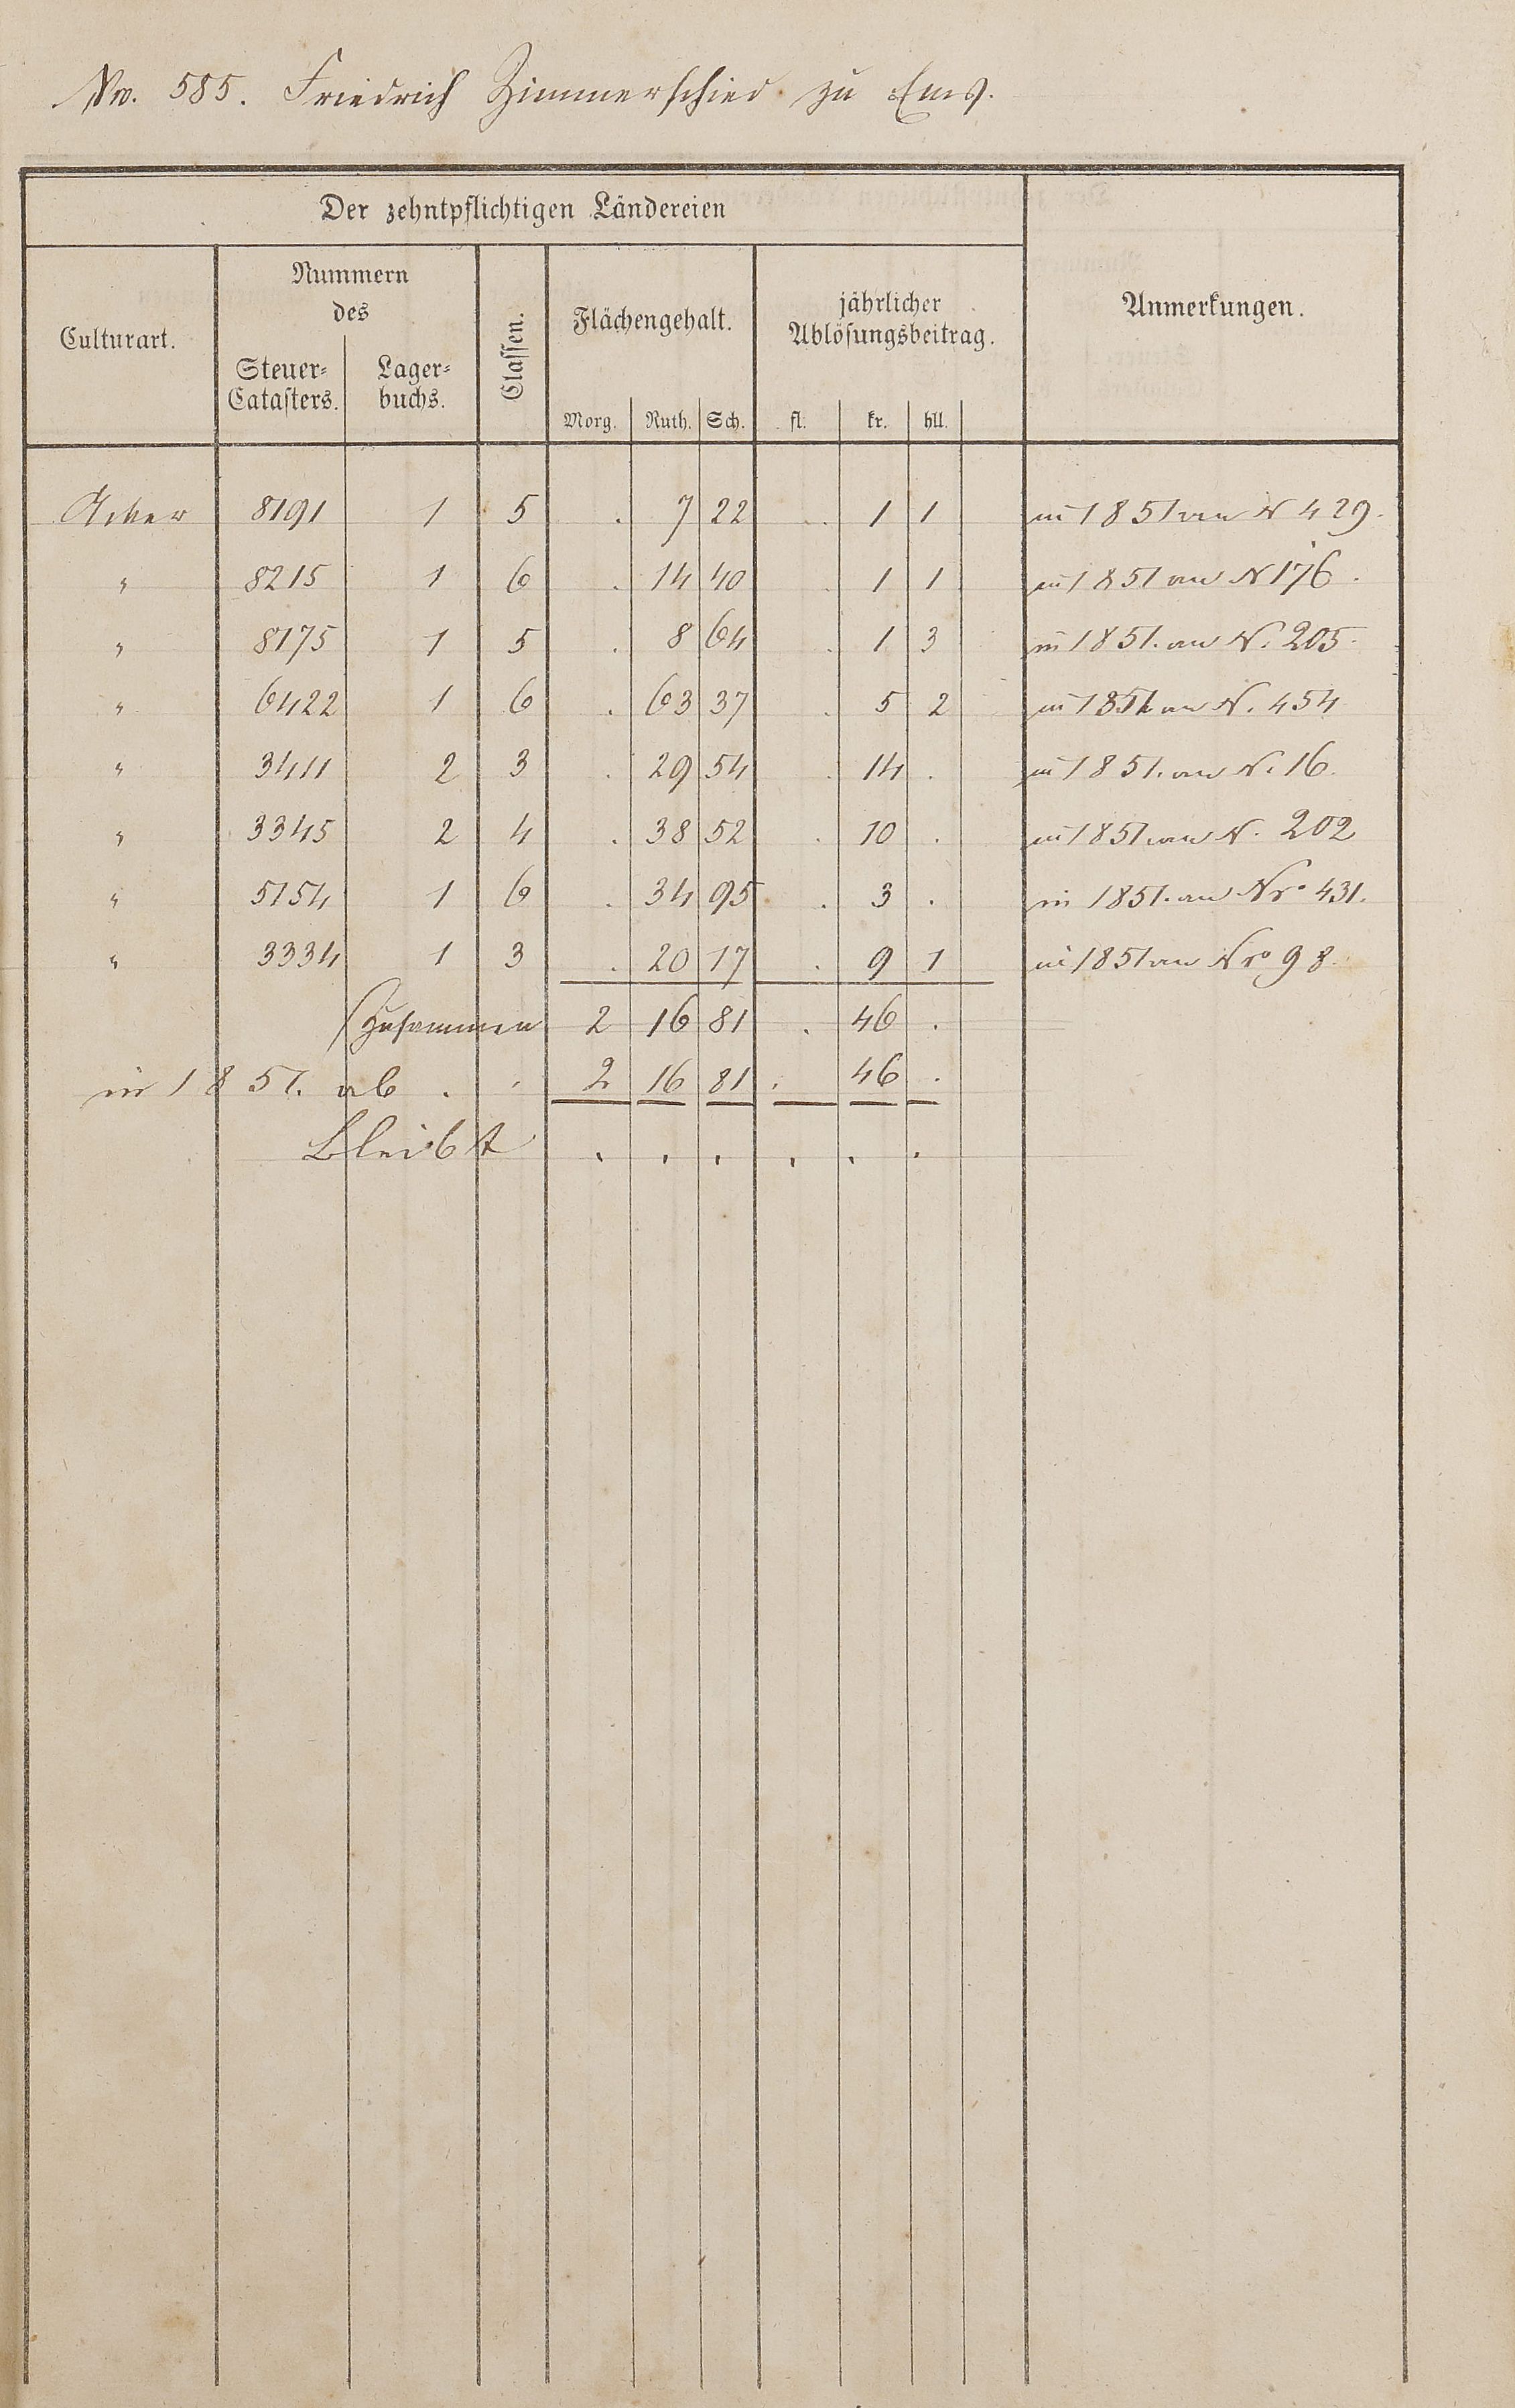 No. 585. Friedrich Zimmerschied zu Ems.
Der zehntpflichtigen Ländereien
Culturart. Nummern des Steuer-Catasters. Lager-buchs. Classen. Flächengehalt. Morg. Ruth. Sch. jährlicher Ablösungsbeitrag. fl. kr. hll. Anmerkungen.
Acker 8191 1 5 . 7 22 . 1 1 in 1851 an N 429.
" 8215 1 6 . 14 40 . 1 1 in 1851 an N 176.
" 8175 1 5 . 8 64 . 1 3 in 1851. an N. 205.
" 6422 1 6 . 63 37 . 5 2 in 1851 an N. 454
" 3411 2 3 . 29 54 . 14 . in 1851. an N. 16.
" 3345 2 4 . 38 52 . 10 . in 1851 an N. 202
" 5154 1 6 . 34 95 . 3 . in 1851. an Nro 431.
" 3334 1 3 . 20 17 . 9 1 in 1851 an Nro 98.
Zusammen 2 16 81 . 46 .
in 1851. ab . . 2 16 81 . 46 .
Bleibt . . . . . .